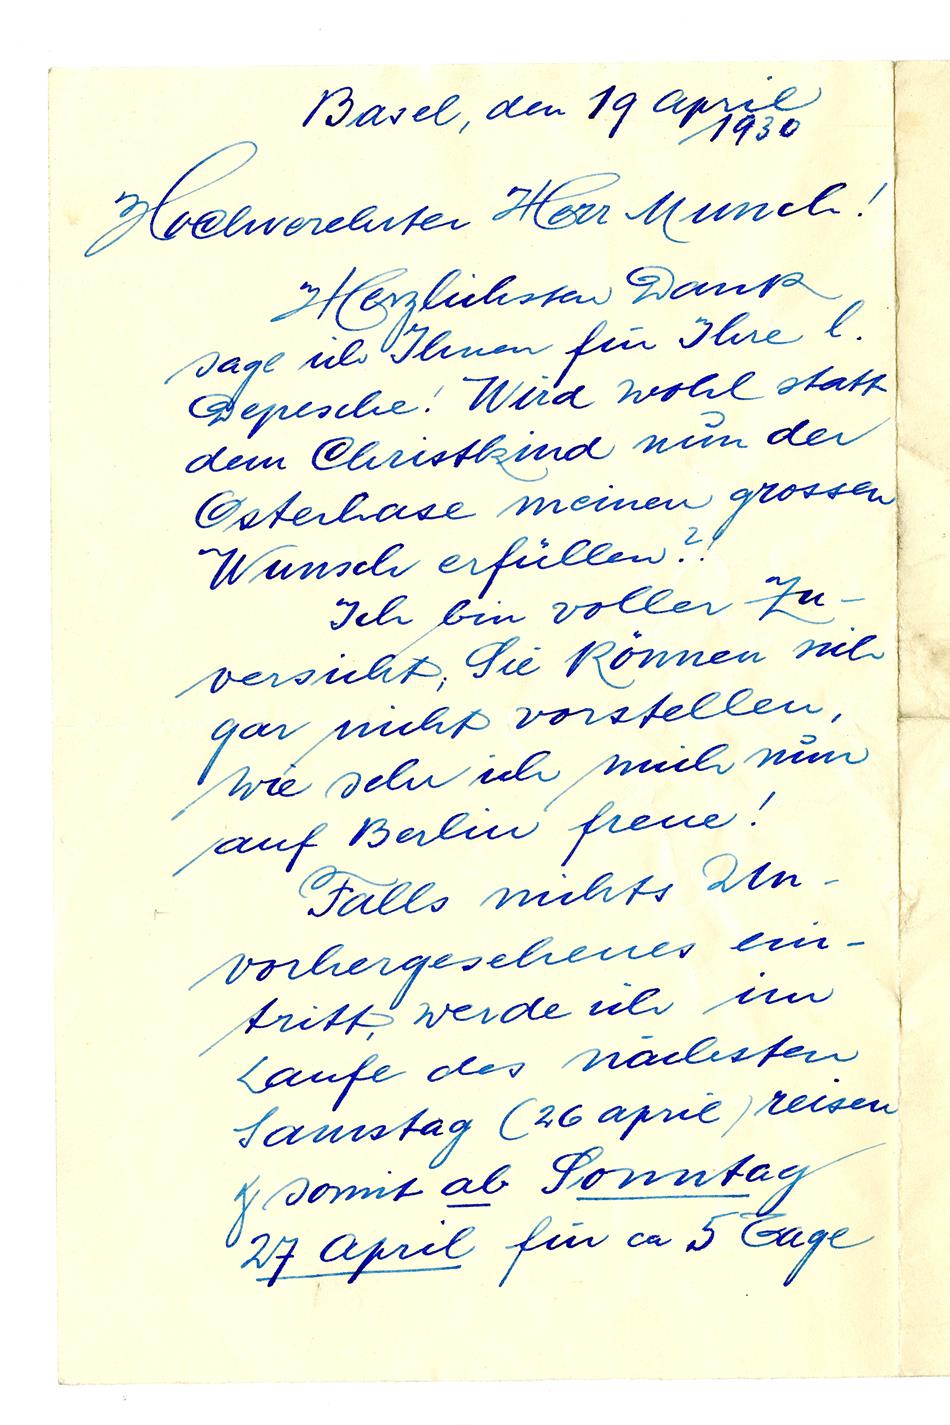 Basel, den 19 April
1930
Hochverehrter Herr Munch!
Herzlichsten Dank
sage ich Ihnen für Ihre l.
Depesche! Wird wohl statt
dem Christkind nun der
Osterhase meinen grossen
Wunsch erfüllen?!
Ich bin voller Zu-
versicht, Sie können sich
gar nicht vorstellen,
wie sehr ich mich nun
auf Berlin freue!
Falls nichts Un-
vorhergesehenes ein-
tritt, werde ich im
Laufe des nächsten
Samstag (26 April) reisen
& somit ab Sonntag
27 April für ca 5 Tage